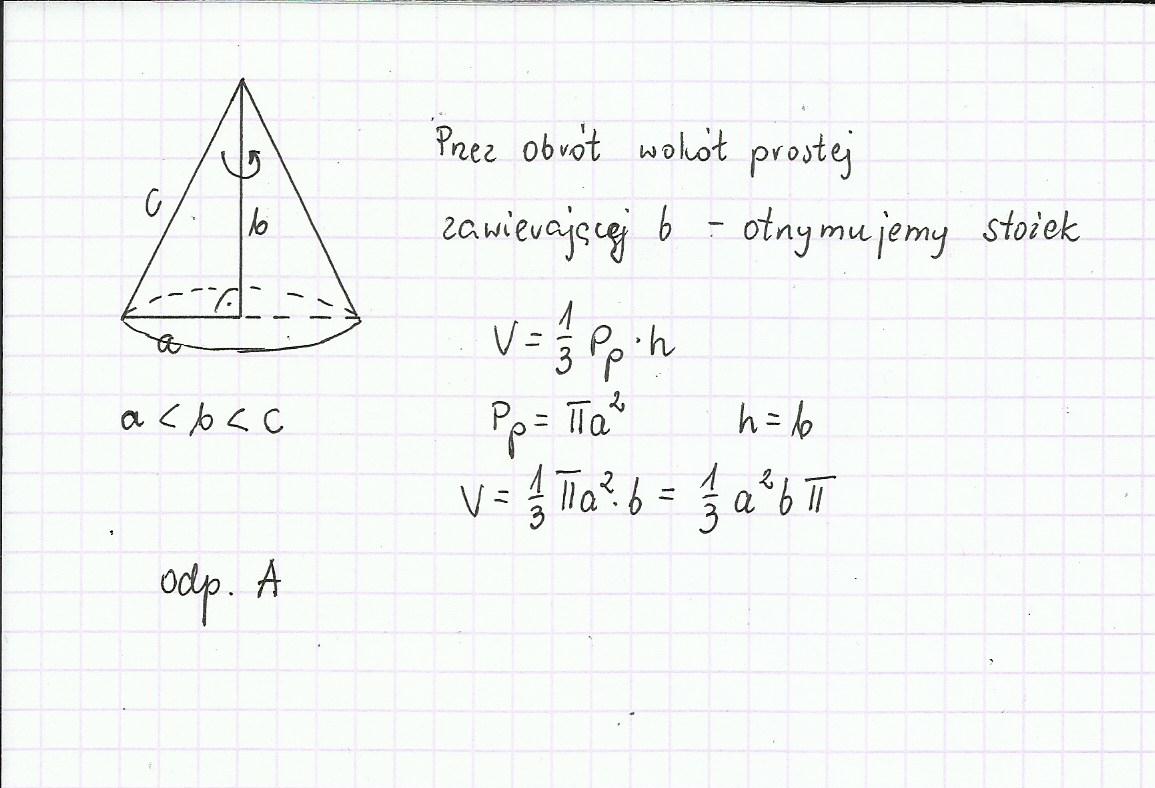 c
b
a
a < b < c
odp. A
Przez obrót wokół prostej
zawierającej b – otrzymujemy stożek
V = 1/3 Pp · h
Pp = πa² h = b
V = 1/3 πa² · b = 1/3 a²b π